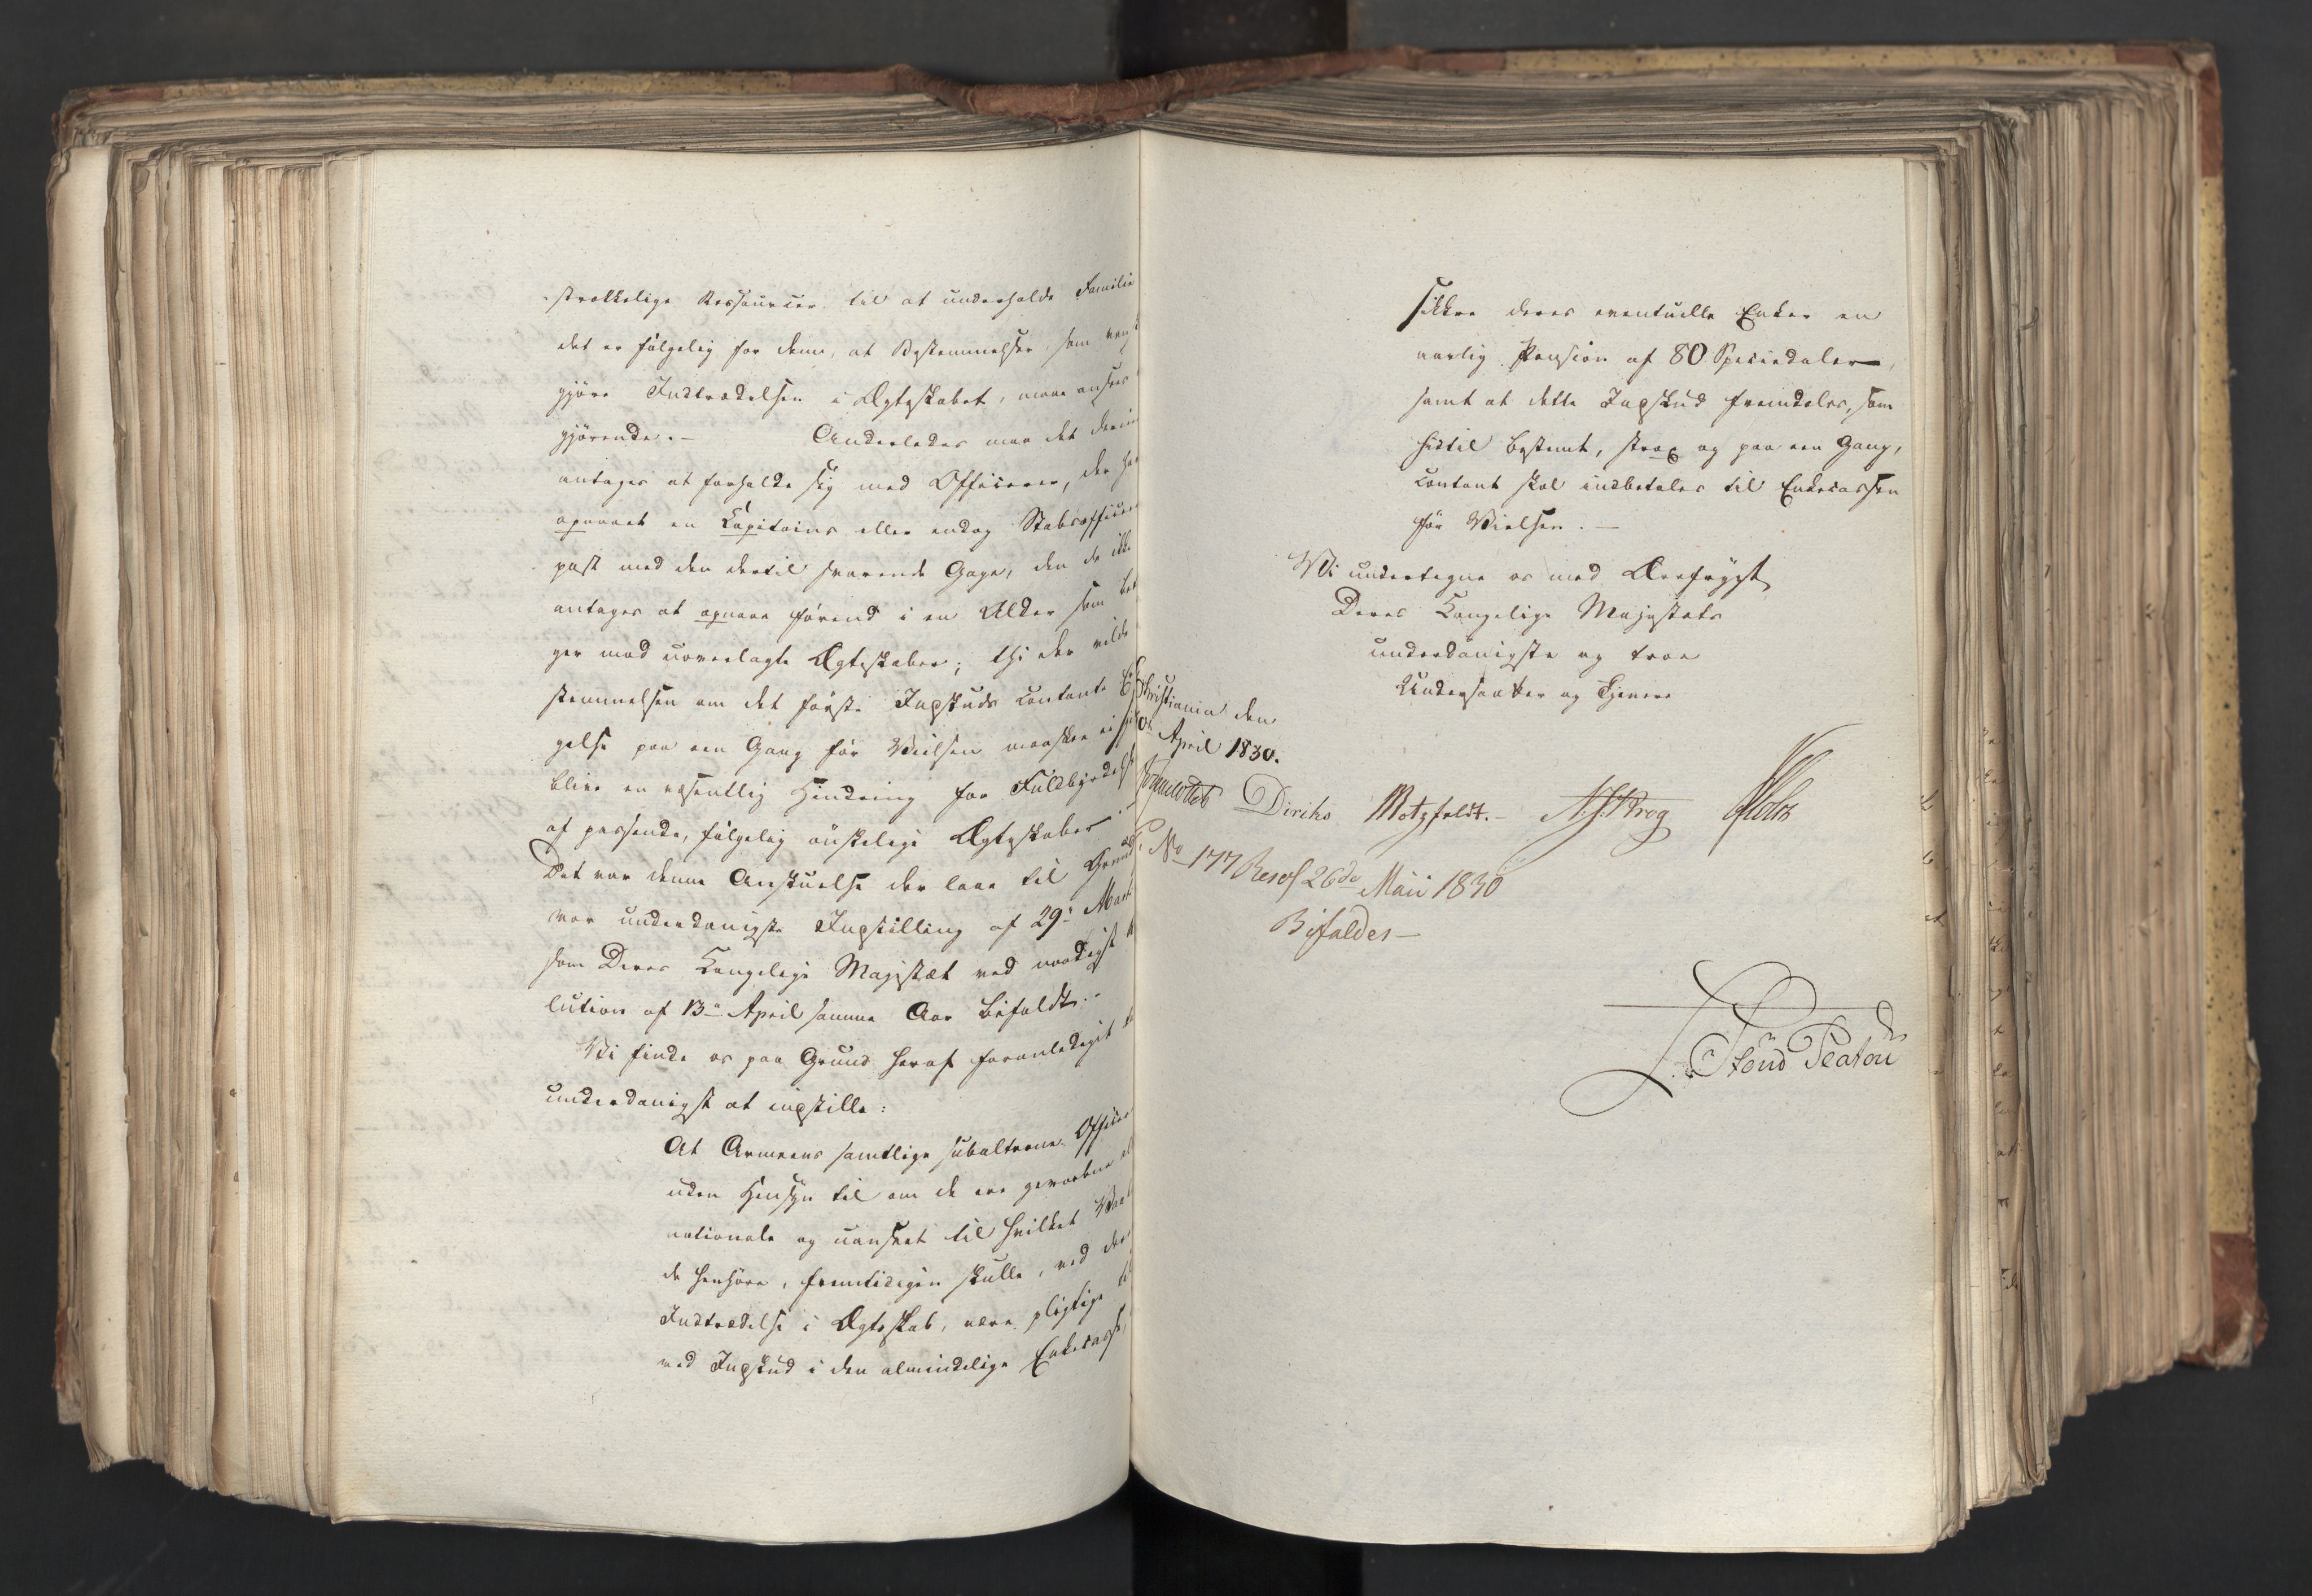 strækkelige Ressourcer til at underholde Familie
det er følgelig for dem, at Bestemmelser, som
gjøre Indtrædelsen i Ægteskabet, maae ansees
gjørende. — Anderledes maa det
antages at forholde sig med Officerer, der
opnaaet en Kapitains eller endog Stabsofficer
post med den dertil svarende Gage, den de ikke
antages at opnaae førend i en Alder som
ger mod uoverlagte Ægteskaber; thi der vilde
stemmelsen om det første Indskuds contante
gelse paa een Gang før Vielsen maaskee
blive en væsentlig Hindring for Fuldbyrdelse
af passende, følgelig ønskelige Ægteskaber.
Det var denne Anskuelse der laae til Grund
vor underdanigste Indstilling af 29
som Deres Kongelige Majestæt ved naadigst
lution af 13de April samme Aar bifaldt. —
Vi finde os paa Grund heraf foranlediget
underdanigst at indstille:
At Armeens samtlige subalterne Officer
uden Hensyn til om de ere gevorbne
nationale og uanseet til hvilket
de henhøre, fremtidigen skulle, ved
Indtrædelse i Ægteskab, være pligtige
ved Indskud i den almindelige Enkecasse,
sikkre deres eventuelle Enker en
aarlig Pension af 80 Speciedaler,
samt at dette Indskud fremdeles, som
hidtil bestemt, strax og paa een Gang,
contant skal indbetales til Enkecassen
før Vielsen. —
Vi undertegne os med Ærefrygt
Deres Kongelige Majestæts
underdanigste og troe
Undersaatter og Tjenere
Christiania den
April 1830.
Diriks Motzfeldt. — Holst
No 177 Resol 26de Maii 1830
Bifaldes —